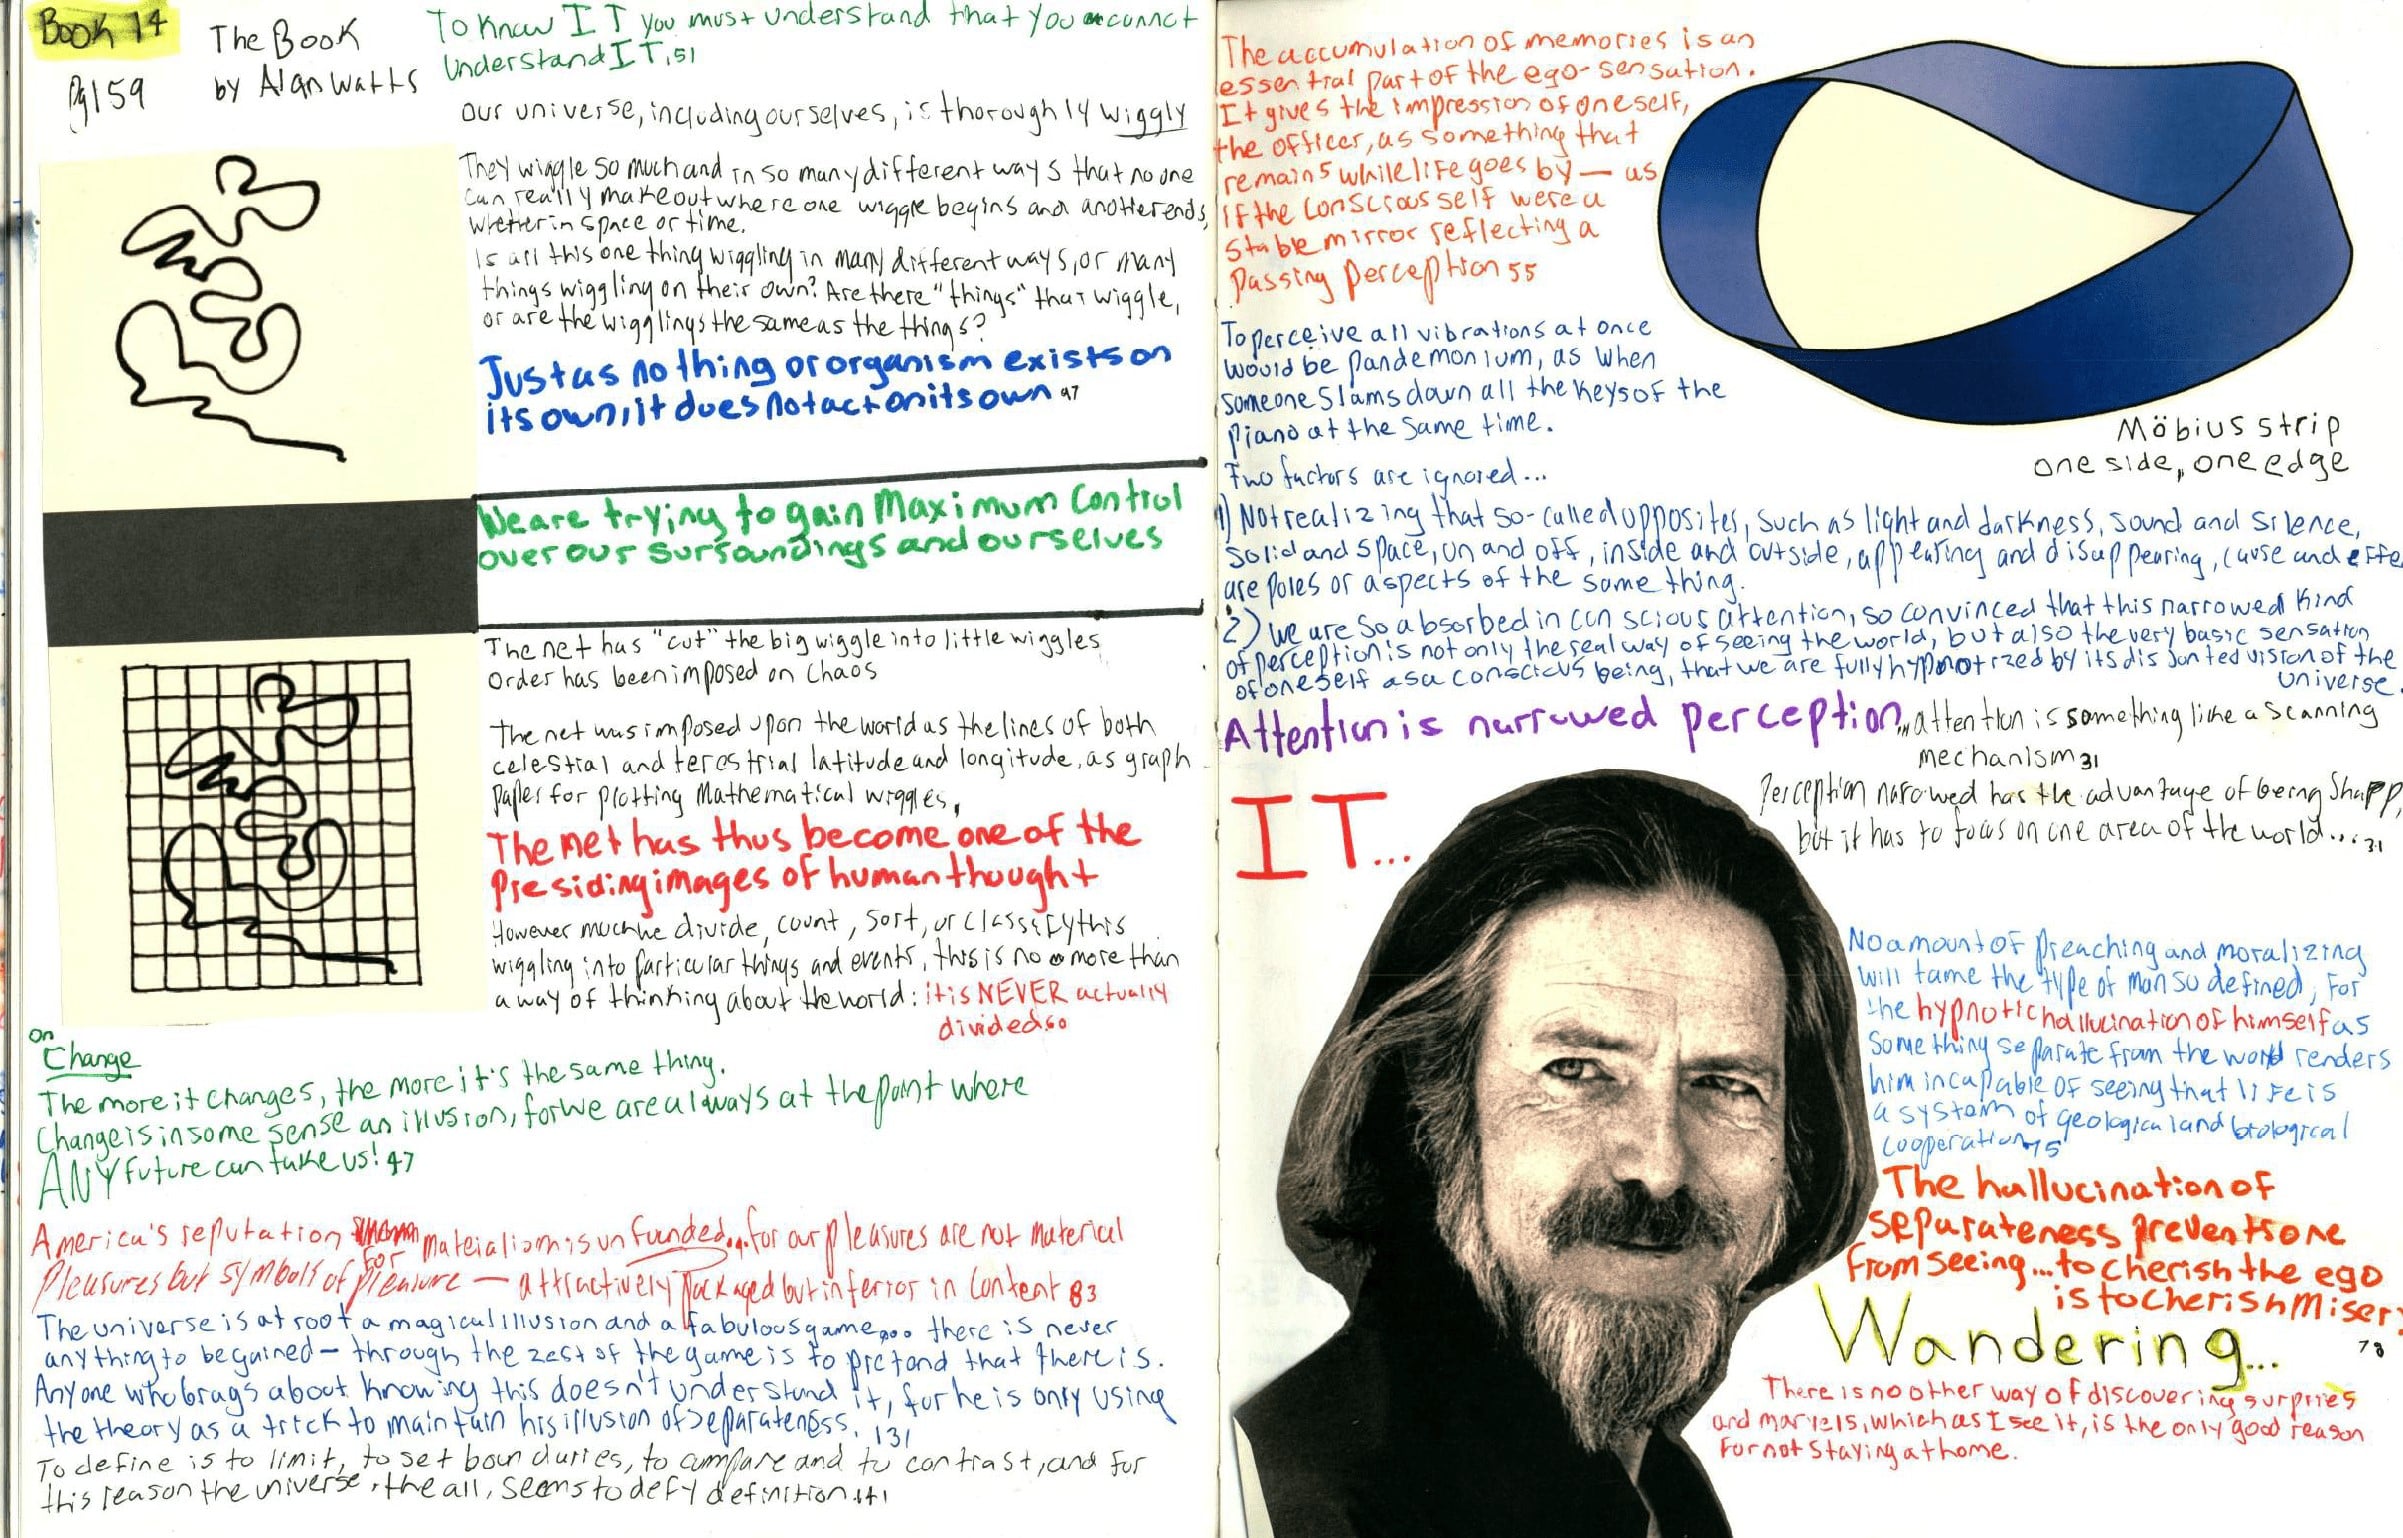 Book 14
Pg 159
The Book
by Alan Watts
To know IT you must understand that you cannot
understand IT. 51
Our universe, including ourselves, is thoroughly wiggly
They wiggle so much and in so many different ways that no one
can really make out where one wiggle begins and another ends,
whether in space or time.
Is all this one thing wiggling in many different ways, or many
things wiggling on their own? Are there "things" that wiggle,
or are the wigglings the same as the things?
Just as no thing or organism exists on
its own, it does not act on its own 97
We are trying to gain Maximum Control
over our surroundings and ourselves
The net has "cut" the big wiggle into little wiggles
Order has been imposed on Chaos
The net was imposed upon the world as the lines of both
celestial and terestrial latitude and longitude, as graph
paper for plotting Mathematical wiggles,
The net has thus become one of the
Presiding images of human thought
However much we divide, count, sort, or classify this
wiggling into particular things and events, this is no more than
a way of thinking about the world: it is NEVER actually
divided 60
on
Change
The more it changes, the more it's the same thing.
Change is in some sense an illusion, for we are always at the point where
ANY future can take us! 47
America's reputation for mateialism is unfounded... for our pleasures are not material
Pleasures but symbols of pleasure — attractively packaged but inferior in content 83
The universe is at root a magical illusion and a fabulous game... there is never
anything to be gained — through the zest of the game is to pretend that there is.
Anyone who brags about knowing this doesn't understand it, for he is only using
the theory as a trick to maintain his illusion of separateness. 131
To define is to limit, to set boundaries, to compare and to contrast, and for
this reason the universe, the all, seems to defy definition. 141
The accumulation of memories is an
essential part of the ego-sensation.
It gives the impression of oneself,
the officer, as something that
remains while life goes by — as
if the conscious self were a
stable mirror reflecting a
Passing perception 55
To perceive all vibrations at once
would be pandemonium, as when
someone slams down all the keys of the
piano at the same time.
Two factors are ignored...
1) Not realizing that so-called opposites, such as light and darkness, sound and silence,
solid and space, on and off, inside and outside, appearing and disappearing, cause and effe
are poles or aspects of the same thing.
2) we are so absorbed in conscious attention, so convinced that this narrowed kind
of perception is not only the real way of seeing the world, but also the very basic sensation
of oneself as a conscious being, that we are fully hypnotized by its disjointed vision of the
universe.
Attention is narrowed perception... attention is something like a scanning
mechanism 31
Perception narrowed has the advantage of being sharp,
but it has to focus on one area of the world... 31
Möbius strip
one side, one edge
IT...
No amount of preaching and moralizing
will tame the type of man so defined, for
the hypnotic hallucination of himself as
something separate from the world renders
him incapable of seeing that life is
a system of geological and biological
cooperation 75
The hallucination of
separateness prevents one
from seeing... to cherish the ego
is to cherish Miser
78
Wandering...
There is no other way of discovering surpries
and marvels, which as I see it, is the only good reason
for not staying at home.